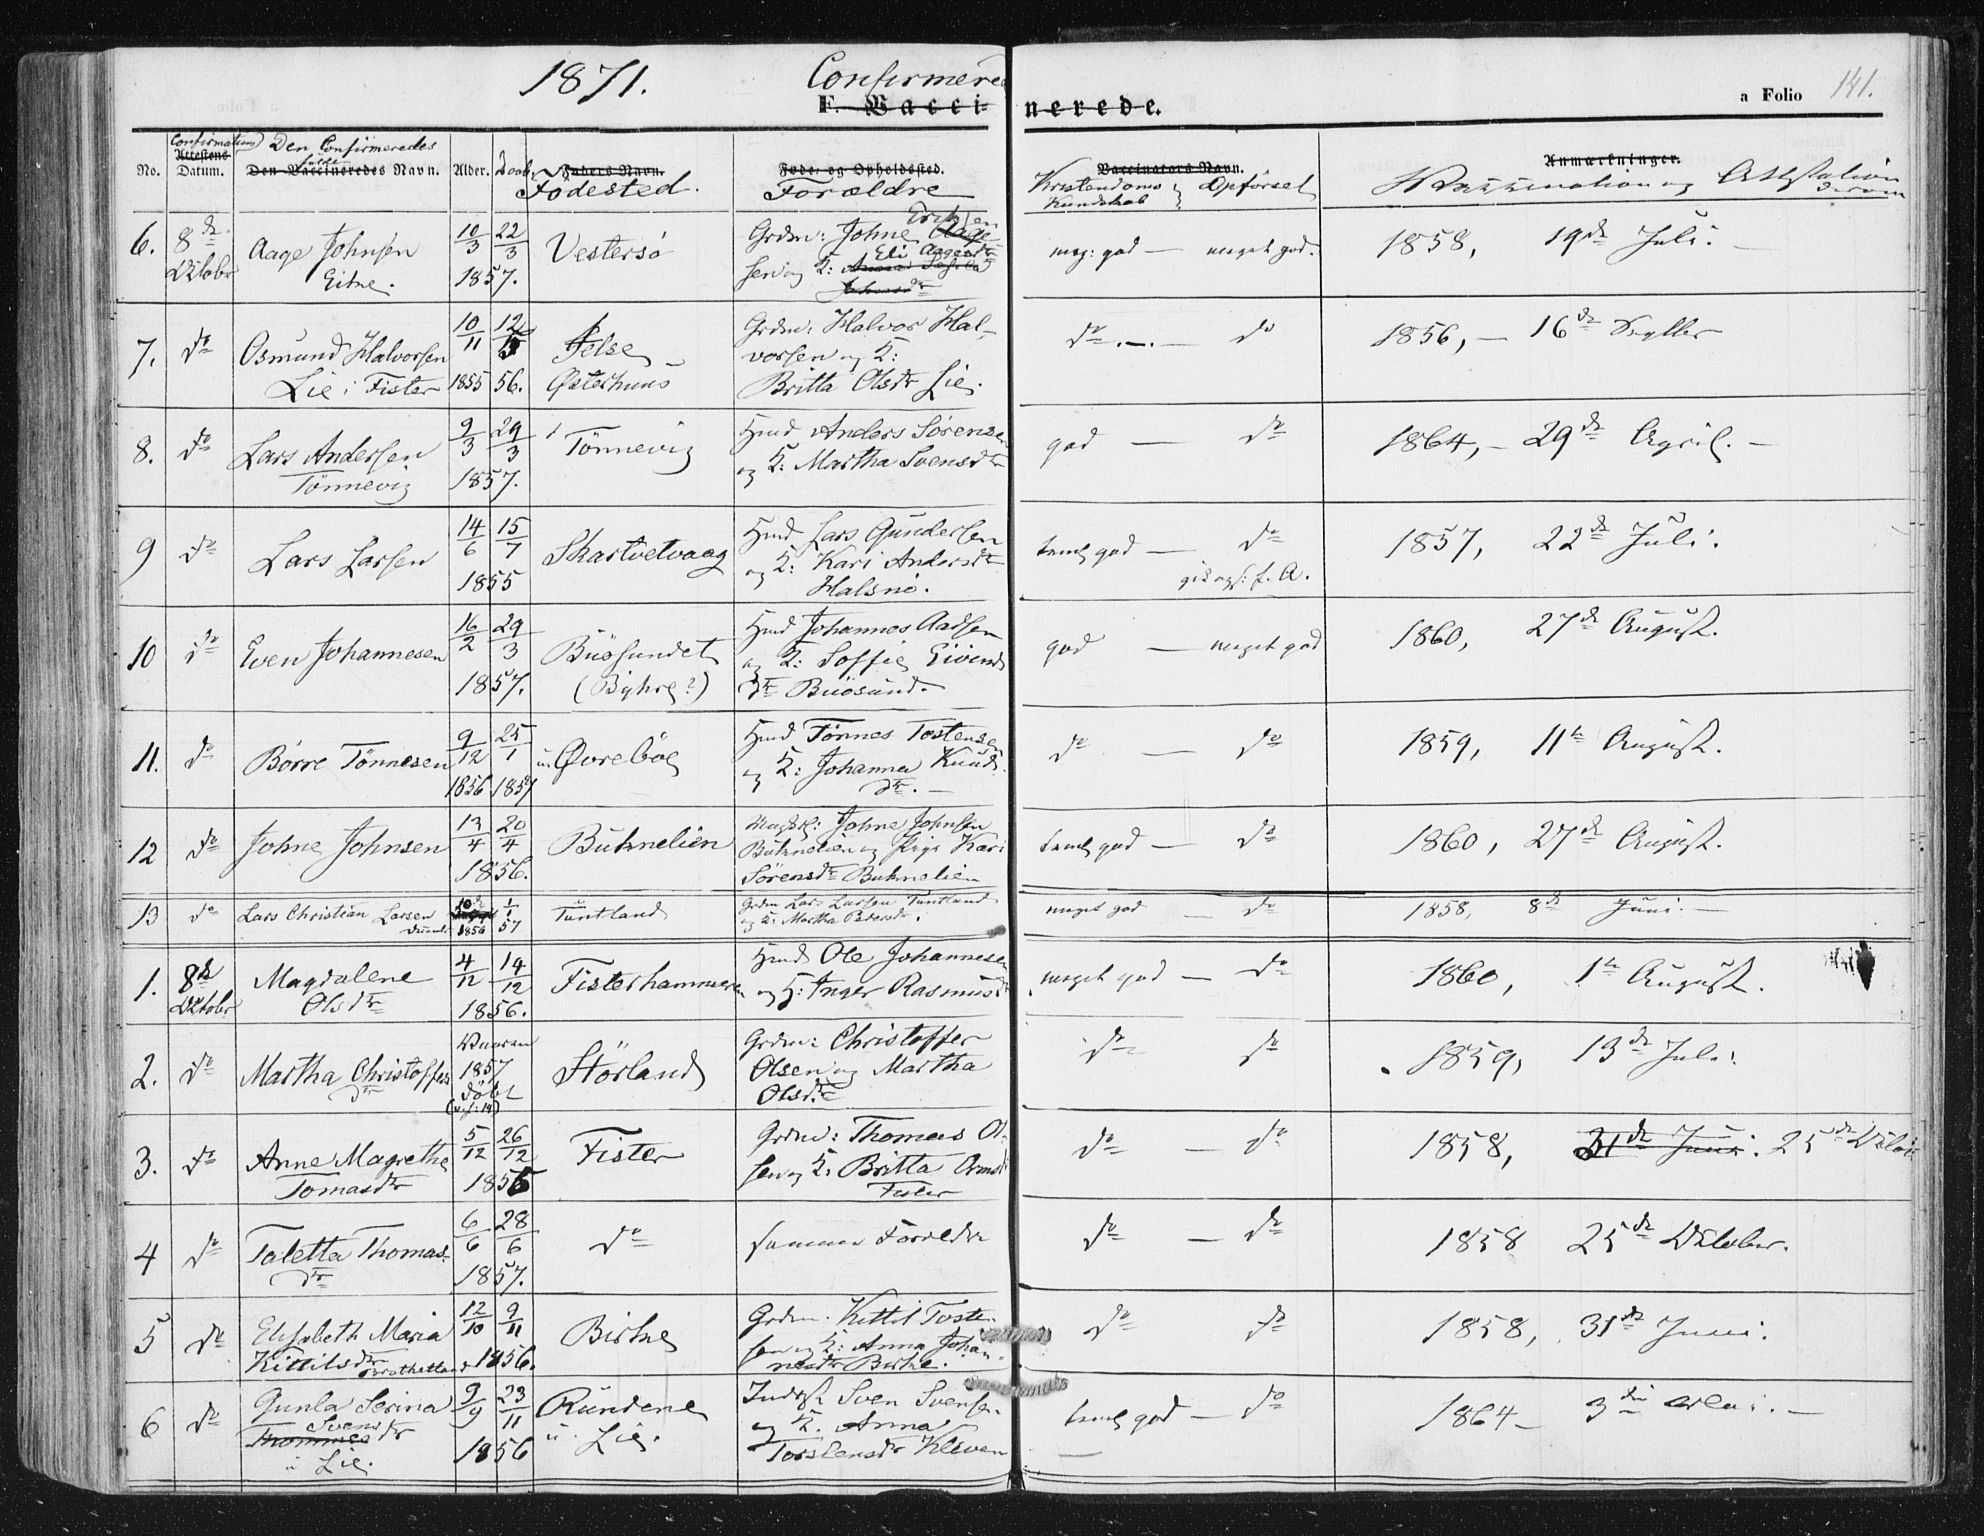 1871.
Confirmerede
F. Vaccinerede.
a Folio 141.
No.
Confirmations
Attestens
Datum.
Den Confirmeredes
fulde
Den Vaccineredes Navn.
Alder.
Daab.
Faders Navn.
Födested.
Føde- og Opholdssted.
Forældre
Vaccinators Navn.
Kristendoms Kundskab
Opförsel
Anmærkninger.
Vaccination og Attestation
derom
6. 8de Oktober Aage Johnsen Eitne. 10/3 22/3 1857. Vestersö
Grdm: Johne Erichsen
sen og K: Eli Aagesdr
meg: god — meget god. 1858, 19de Juli. —
7. do Osmund Halvorsen Lie i Fister 10/11 1855 12/ 56. Felse Østerhuus
Grdm: Halvor Hal-
vorsen og K:
Britta Olsdr Lie.
do — do 1856, — 16de
8. do Lars Andersen Tönnevig 9/3 29/3 1857. Tönnevig
Hmd Anders Sörensen
og K: Martha Svensdr
god — do 1864, — 29de April. —
9 do Lars Larsen 14/6 15/7 1855 Skartvetvaag
Hmd Lars Gundersen
og K: Kari Andersdr
Halsnö.
temel god — do 1857, 22de Juli.
10 do Even Johannesen 16/2 29/3 1857. Buösundet (Byhre?)
Hmd Johannes Aadsen
og K: Soffie Eivends
dr Buösund.
god — meget god 1860, 27de August.
11. do Börre Tönnesen 9/12 1856 25/1 1857 u. Øvreböe
Hmd Tönnes Tostensen
og K: Johanna Knuds
dr. —
do — do 1859, 11te August.
12 do Johne Johnsen 13/4 20/4 1856. Buknelien
Johne Johnsen
Buknelien og Pige Kari
Sörensdr Buknelien
temel god — do 1860, 27de August.
13 do Lars Christian Larsen 10de 1856 1/1 57 Tuntland
Grdm Lars Larsen Tuntland
og K: Martha Pedersdr.
meget god do 1858, 8de Juni. —
1. 8de Oktober Magdalene Olsdr 4/12 14/12 1856. Fisterhammeren
Hmd Ole Johannesen
og K: Inger Rasmusdr
meget god — do 1860, 1te August.
2. do Martha Christoffers dr 1857 döbt Störland
Grdm: Christoffer
Olsen og Martha
Olsdr
do do 1859, 13de Juli.
3. do Anne Magrethe Tomasdr 5/12 26/12 1855 Fister
Grdm: Thomas Ol-
sen og K: Britta
Fister
do — do 1858, 31de Juni. 25de Oktob
4 do Taletta Thomas- dr 6/6 28/6 1857. do
samme Forældre
do — do 1858 25de Oktober.
5 do Elisabeth Maria Kittilsdr 12/10 9/11 1856. Birke
Grdm. Kittil Tosten
sen og K: Anna Johan-
nesdr Birke.
do do 1858, 31de Juni.
6 do Gunla Serina Svensdr u Lie. 9/9 23/11 1856 Rundene u. Lie.
Inderst Sven Svensen
og K. Anna
Torstensdr Kleven
temel god — do 1864 — 3die Mai. —